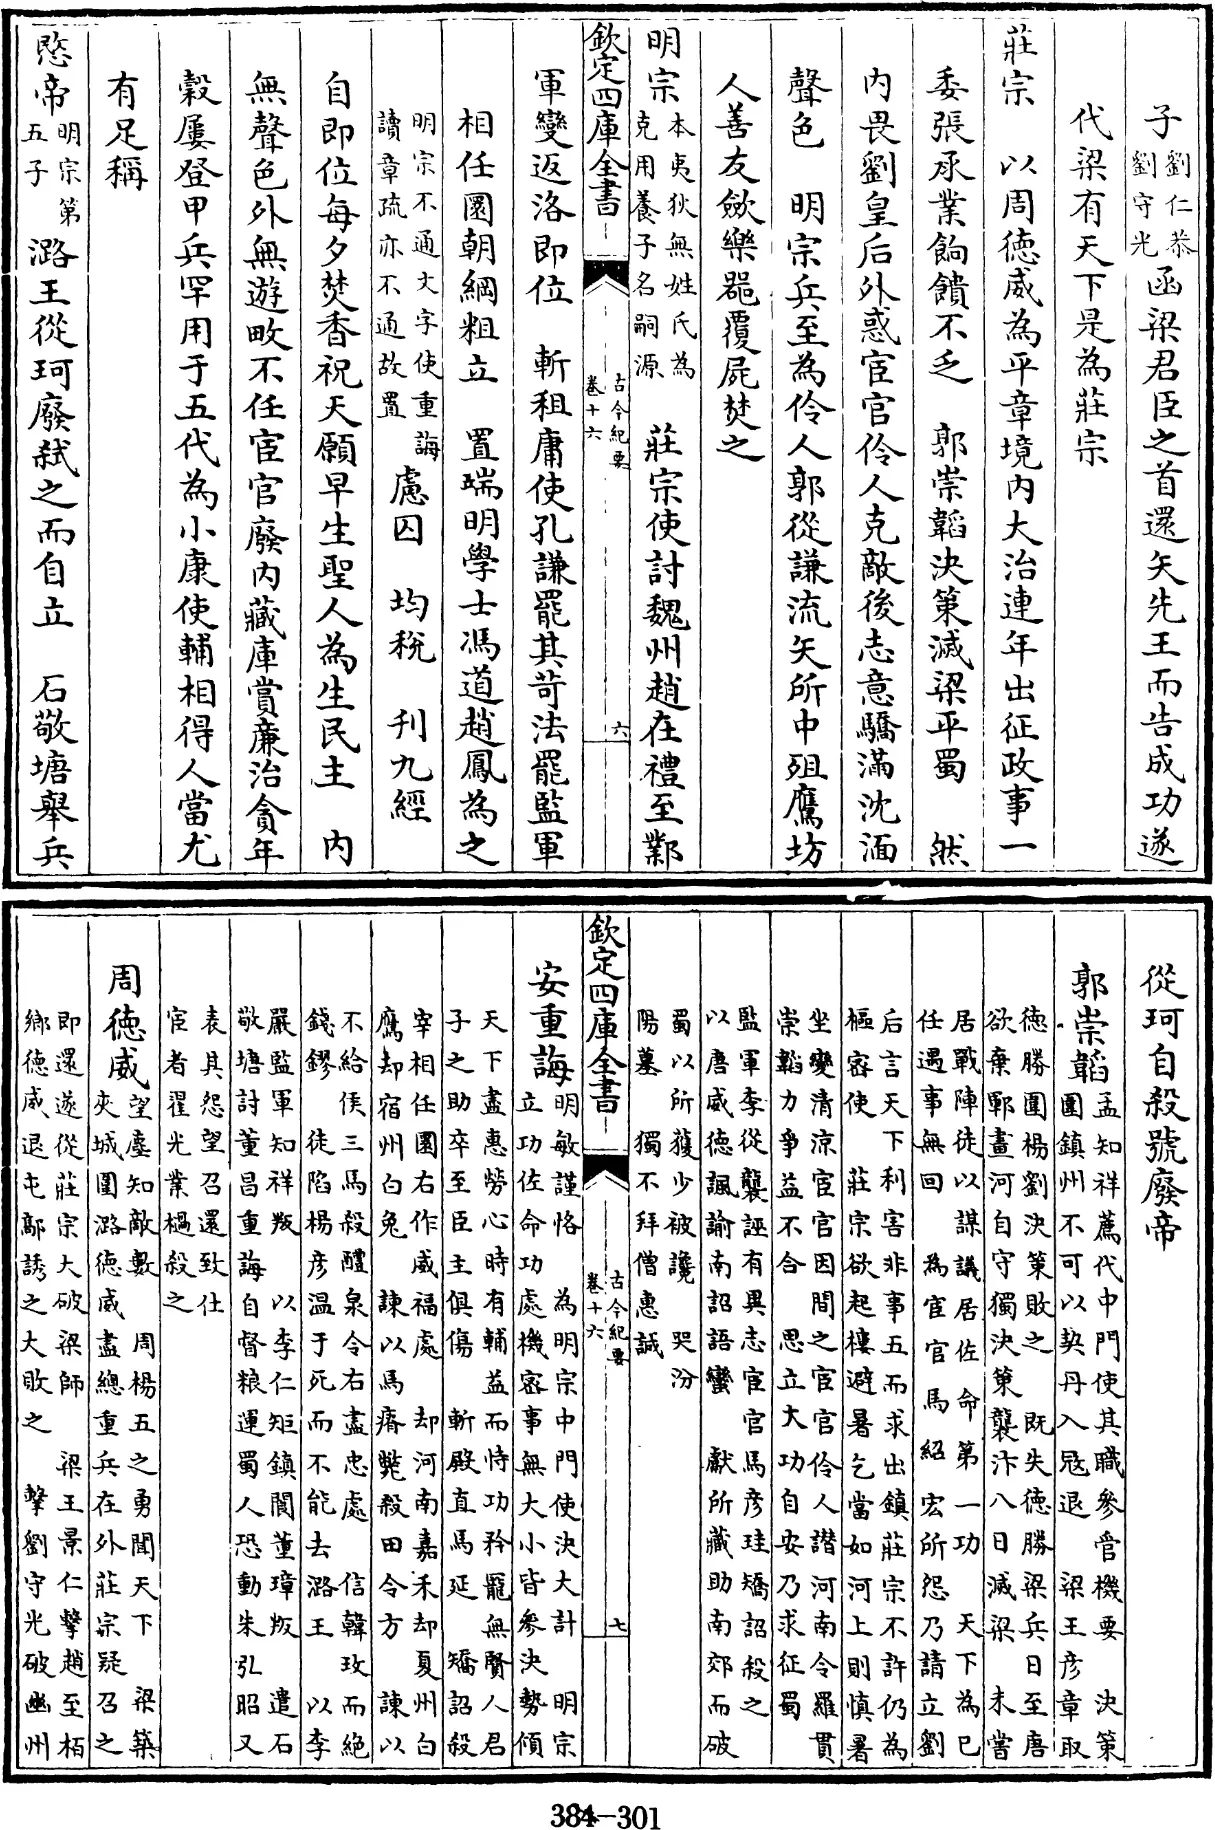 子劉仁恭劉守光函梁君臣之首還矢先王而告成功遂
代梁有天下是為莊宗
莊宗　以周徳威為平章境内大治連年出征政事一
委張承業餉饋不乏　郭崇韜決策滅梁平蜀　然
内畏劉皇后外惑宦官伶人克敵後志意驕滿沈湎
聲色　明宗兵至為伶人郭從謙流矢所中殂鷹坊
人善友斂樂噐覆屍焚之
明宗本夷狄無姓氏為克用養子名嗣源　莊宗使討魏州趙在禮至鄴
欽定四庫全書　古今紀要卷十六　六
軍變返洛即位　斬租庸使孔謙罷其苛法罷監軍
相任圜朝綱粗立　置端明學士馮道趙鳳為之
明宗不通文字使重誨讀章疏亦不通故置　慮囚　均稅　刋九經
自即位每夕焚香祝天願早生聖人為生民主　内
無聲色外無遊畋不任宦官廢内藏庫賞廉治貪年
榖屢登甲兵罕用于五代為小康使輔相得人當尤
有足稱
愍帝明宗第五子　潞王從珂廢弑之而自立　石敬塘舉兵
從珂自殺號廢帝
郭崇韜孟知祥薦代中門使其職參管機要　決策
圍鎮州不可以契丹入冦退　梁王彦章取
徳勝圍楊劉決策敗之　既失徳勝梁兵日至唐
欲棄鄆畫河自守獨決策襲汴八日滅梁　未嘗
居戰陣徒以謀議居佐命第一功　天下為已
任遇事無回　為宦官馬紹宏所怨乃請立劉
后言天下利害非事五而求出鎮莊宗不許仍為
樞宻使　莊宗欲起樓避暑乞當如河上則慎暑
坐變清凉宦官因間之宦官伶人譖河南令羅貫
崇韜力爭益不合　思立大功自安乃求征蜀
監軍李從襲誣有異志宦官馬彦珪矯詔殺之
以唐威徳諷諭南詔語蠻　獻所藏助南郊而破
蜀以所獲少被讒　哭汾
陽墓　獨不拜僧惠誠
欽定四庫全書　古今紀要卷十六　七
安重誨明敏謹恪　為明宗中門使決大計　明宗
立功佐命功處機宻事無大小皆參決勢傾
天下盡惠勞心時有輔益而恃功矜寵無賢人君
子之助卒至臣主俱傷　斬殿直馬延　矯詔殺
宰相任圜右作威福處　却河南嘉禾却夏州白
鷹却宿州白兔　諫以馬瘠斃殺田令方　諫以
不給侯三馬殺醴泉令右盡忠處　信韓玫而絶
錢鏐　徒陷楊彦温于死而不能去潞王　以李
嚴監軍知祥叛　以李仁矩鎮閬董璋叛　遣石
敬塘討董昌重誨自督粮運蜀人恐動朱弘昭又
表其怨望召還致仕
宦者翟光業檛殺之
周徳威望塵知敵數　周楊五之勇聞天下　梁築
夾城圍潞徳威盡總重兵在外莊宗疑召之
即還遂從莊宗大破梁師　梁王景仁擊趙至栢
鄉徳威退屯鄗誘之大敗之　擊劉守光破幽州
384-301